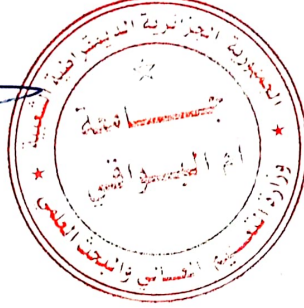 الجمهورية الجزائرية الديمقراطية الشعبية
جامعة
ام البواقي
وزارة التعليم العالي والبحث العلمي